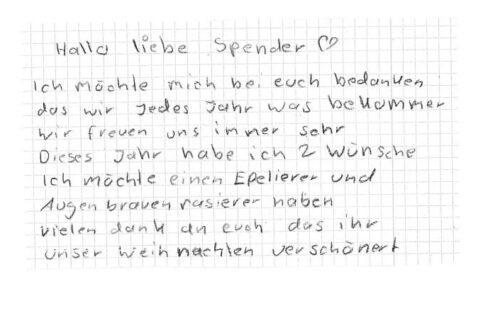 Hallo liebe Spender ♡
Ich möchte mich bei euch bedanken
das wir Jedes Jahr was bekommen
wir freuen uns immer sehr
Dieses Jahr habe ich 2 Wünsche
Ich möchte einen Epelierer und
Augen brauen rasierer haben
vielen dank an euch das ihr
unser Weihnachten verschönert